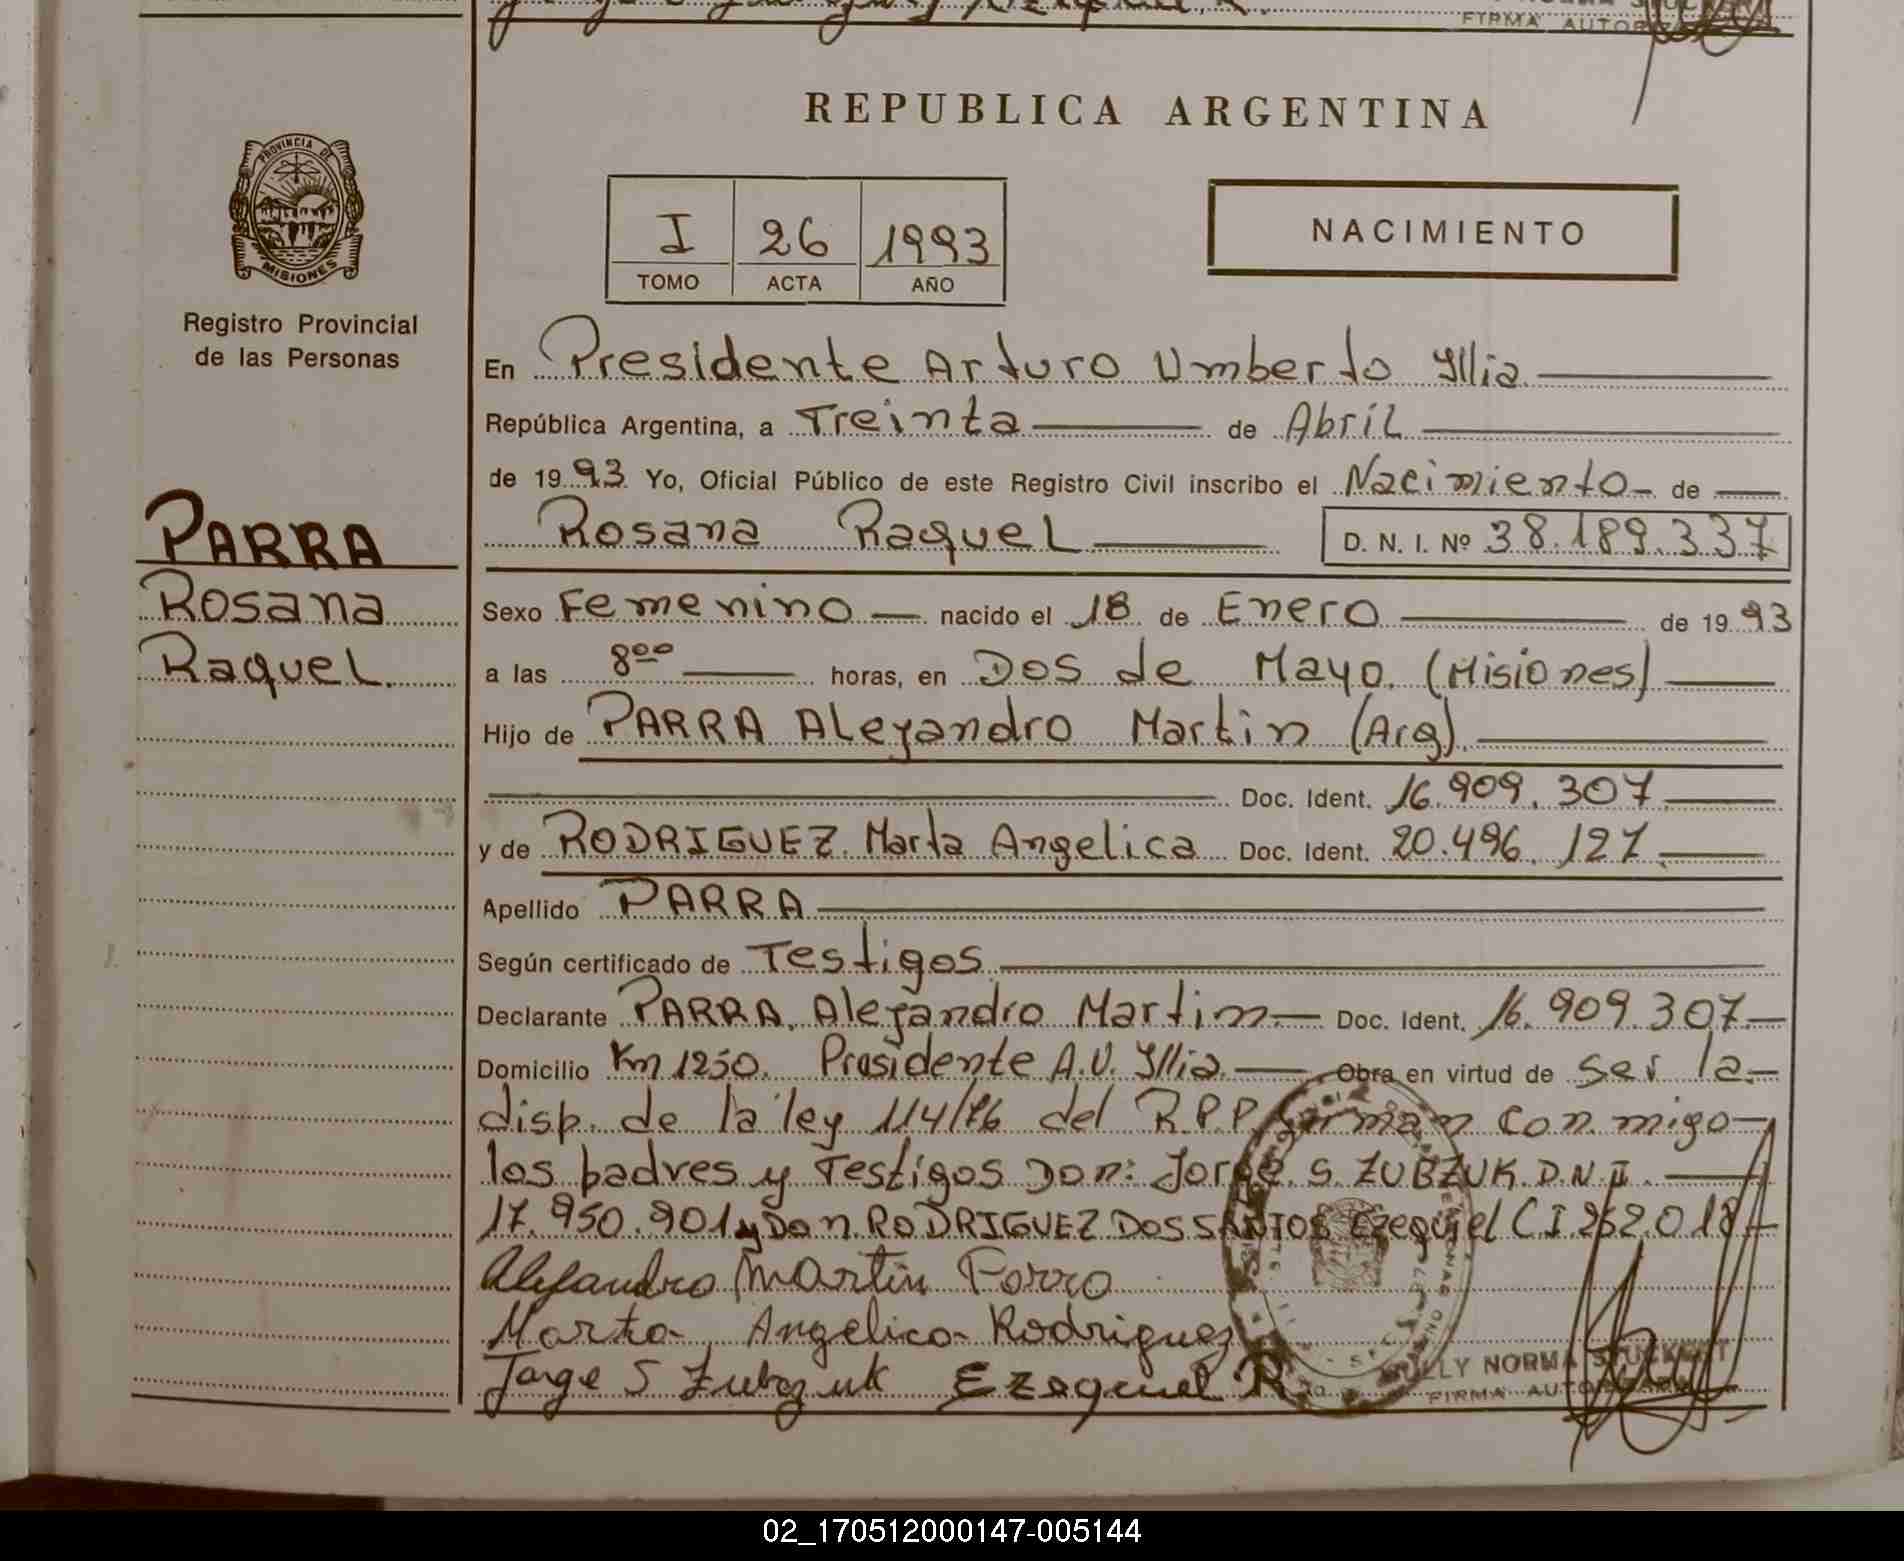 FIRMA AUTORIZADA
REPUBLICA ARGENTINA
PROVINCIA DE
MISIONES
Registro Provincial
de las Personas
I 26 1993
TOMO ACTA AÑO
NACIMIENTO
En Presidente Arturo Umberto Yllia
República Argentina, a Treinta de Abril
de 1993 Yo, Oficial Público de este Registro Civil inscribo el Nacimiento de
Rosana Raquel D. N. I. Nº 38.189.337
PARRA
Rosana
Raquel
Sexo Femenino nacido el 18 de Enero de 1993
a las 8⁰⁰ horas, en Dos de Mayo. (Misiones)
Hijo de PARRA Alejandro Martin (Arg).
Doc. Ident. 16.909.307
y de RODRIGUEZ. Marta Angelica Doc. Ident. 20.496.127
Apellido PARRA
Según certificado de Testigos
Declarante PARRA. Alejandro Martin Doc. Ident. 16.909.307
Domicilio Km 1250. Presidente A.U. Yllia Obra en virtud de ser la
disp. de la ley 114/76 del R.P.P. firman con migo
los padres y Testigos Don: Jorge. S. ZUBZUK. D.N.I.
17.950.901 y Don. RODRIGUEZ DOS SANTOS Ezequiel C.I. 262.018
Alejandro Martin Parra
Marta Angelica Rodriguez
Jorge S Zubzuk Ezequiel R.
NORMA STUCKERT
FIRMA AUTORIZADA
02_170512000147-005144